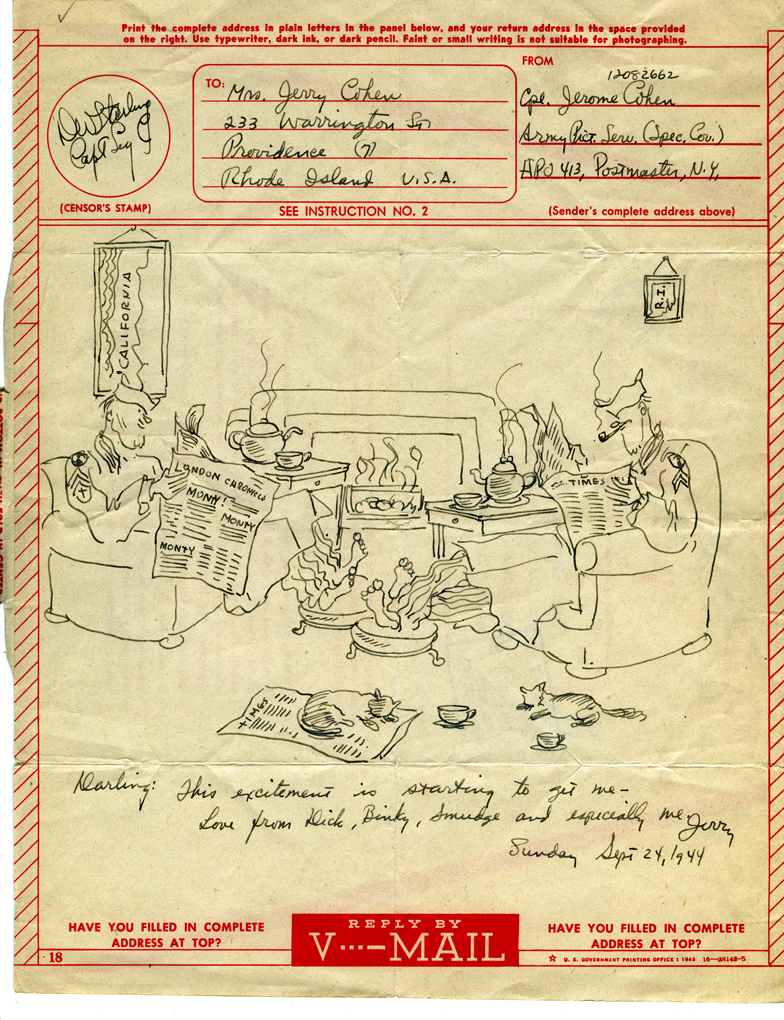 Print the complete address in plain letters in the panel below, and your return address in the space provided
on the right. Use typewriter, dark ink, or dark pencil. Faint or small writing is not suitable for photographing.
FROM
12082662
TO:
Mrs. Jerry Cohen
233 Warrington St.
Providence (7)
Rhode Island U.S.A.
Cpl. Jerome Cohen
Army Pict. Serv. (Spec. Cov.)
APO 413, Postmaster, N.Y.
Capt Sig C
(CENSOR'S STAMP)
SEE INSTRUCTION NO. 2
(Sender's complete address above)
CALIFORNIA
R.I.
LONDON CHRONICLE
MONTY!
MONTY
MONTY
TIMES
TIMES
Darling: This excitement is starting to get me—
Love from Dick, Binky, Smudge and especially me, Jerry
Sunday Sept 24, 1944
HAVE YOU FILLED IN COMPLETE
ADDRESS AT TOP?
REPLY BY
V···—MAIL
HAVE YOU FILLED IN COMPLETE
ADDRESS AT TOP?
18
☆ U. S. GOVERNMENT PRINTING OFFICE : 1943 16—28143-5